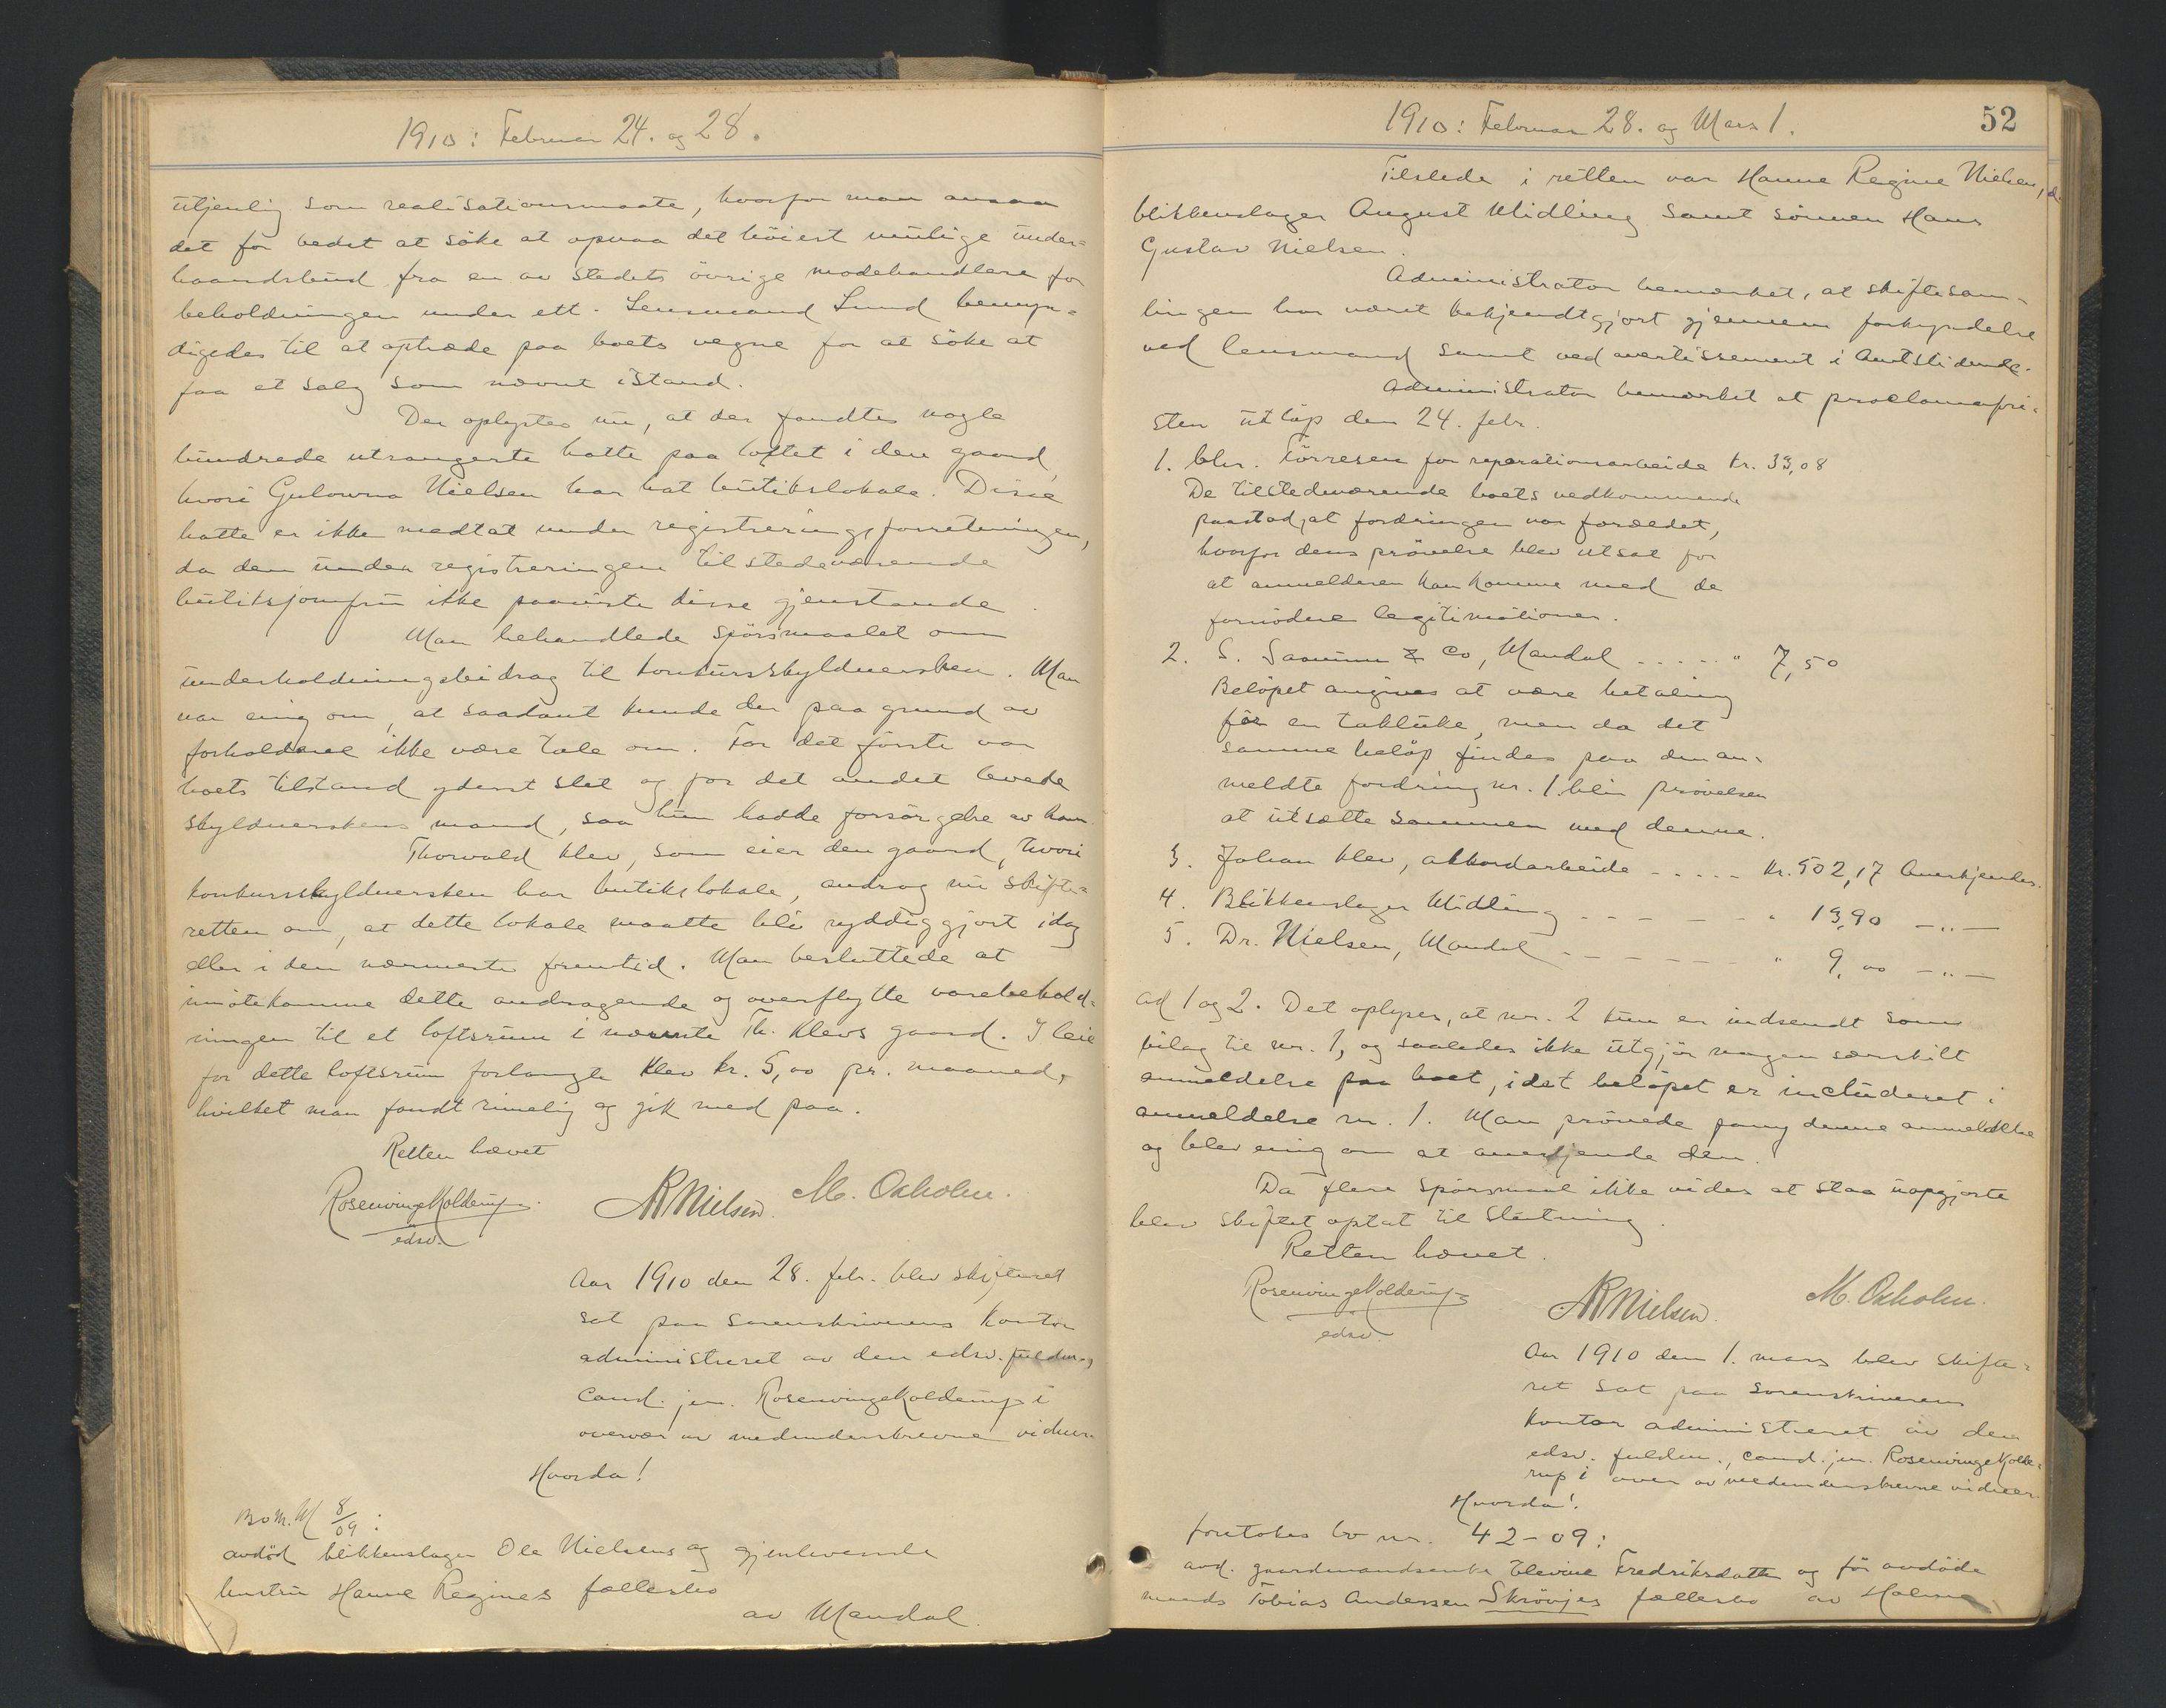 1910: Februar 24. og 28.
utjenlig som realisationsmaate, hvorfor man ansaa
det for bedst at söke at opnaa det höiest mulige under=
haandsbud fra en av stedets övrige modehandlere for
beholdningen under ett. Lensmand Lund bemyn=
digedes til at optræde paa boets vegne for at söke at
faa et salg som nævnt istand.
Der oplystes nu, at der fandtes nogle
hundrede utrangerte hatte paa loftet i den gaard,
hvori Gulowna Nielsen har hat butikslokale. Disse
hatte er ikke medtat under registreringsforretningen,
da den under registreringen tilstedeværende
butiksjomfru ikke paaviste disse gjenstande.
Man behandlede spörsmaalet om
underholdningsbidrag til konkursskyldnersken. Man
var enig om, at saadant kunde der paa grund av
forholdene ikke være tale om. For det förste var
boets tilstand yderst slet og for det andet levede
skyldnerskens mand, saa hun hadde forsörgelse av ham.
Thorvald Klev, som eier den gaard, hvori
konkursskyldnersken har butikslokale, androg nu skifte=
retten om, at dette lokale maatte bli ryddiggjort idag
eller i den nærmeste fremtid. Man besluttede at
imötekomme dette andragende og overflytte varebehold=
ningen til et loftsrum i nævnte Th. Klevs gaard. I leie
for dette loftsrum forlangte Klev kr. 5,00 pr. maaned,
hvilket man fandt rimelig og gik med paa.
Retten hævet
Rosenvinge Kolderup. NR Nielsen. M. Oxholm.
edsv.
Aar 1910 den 28. febr. blev skifteret
sat paa sorenskriverens kontor
administreret av den edsv. fuldm.,
cand. jur. Rosenvinge Kolderup i
overvær av medunderskrevne vidner.
Hvorda!
Bo nr. M 8/09:
avdöd blikkenslager Ole Nielsens og gjenlevende
hustru Hanne Regines fællesbo
av Mandal.
1910: Februar 28. og Mars 1.
52
Tilstede i retten var Hanne Regine Nielsen,
blikkenslager August Midling samt sönnen Hans
Gustav Nielsen.
Administrator bemærket, at skiftesam=
lingen har været bekjendtgjort gjennem forkyndelse
ved lensmand samt ved avertissement i Amtstidende.
Administrator bemærket at proclamafri=
sten utlöp den 24. febr.
1. blev. Törresen for reparationsarbeide kr. 33,08
De tilstedeværende boets vedkommende
paastod, at fordringen var forældet,
hvorfor dens prövelse blev utsat for
at anmelderen kan komme med de
fornödne legitimationer.
2. S. & Co, Mandal ..... " 7,50
Belöpet angives at være betaling
for en takluke, men da det
samme belöp findes paa den an=
meldte fordring nr. 1 blir prövelsen
at utsætte sammen med denne.
3. Johan Klev, akkordarbeide ..... kr. 502,17 Anerkjendes.
4. Blikkenslager Midling - - - - - " 19,90 -"-
5. Dr. Nielsen, Mandal - - - - - " 9,00 -"-
ad 1 og 2. Det oplyses, at nr. 2 kun er indsendt som
bilag til nr. 1, og saaledes ikke utgjör nogen særskilt
anmeldelse paa boet, idet belöpet er includeret i
anmeldelse nr. 1. Man prövede paany denne anmeldelse
og blev enig om at anerkjende den.
Da flere spörsmaal ikke vides at staa uopgjorte
blev skiftet optat til slutning.
Retten hævet.
Rosenvinge Kolderup NR Nielsen. M. Oxholm.
edsv.
Aar 1910 den 1. mars blev skifte=
ret sat paa sorenskriverens
kontor administreret av den
edsv. fuldm., cand. jur. Rosenvinge Kolde=
rup i over av medunderskrevne vidner.
Hvorda!
foretokes bo nr. 42-09:
avd. gaardmandsenke Elevine Fredriksdatter og för avdöde
mands Tobias Andersen Skrövjes fællesbo av Holme